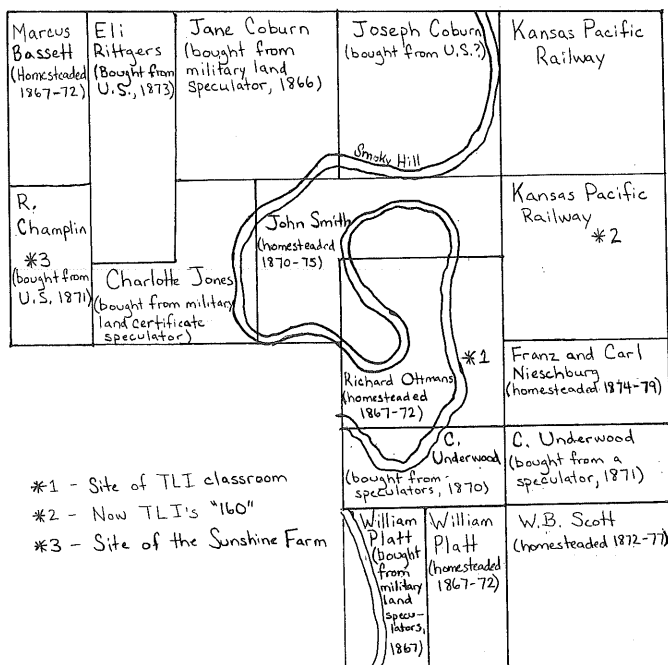 Marcus
Bassett
(Homesteaded
1867-72)
Eli
Rittgers
(Bought from
U.S., 1873)
Jane Coburn
(bought from
military land
speculator, 1866)
Joseph Coburn
(bought from U.S.?)
Kansas Pacific
Railway
Smoky Hill
R.
Champlin
*3
(bought from
U.S, 1871)
Charlotte Jones
(bought from military
land certificate
speculator)
John Smith
(homesteadrd
1870-75)
Kansas Pacific
Railway
*2
Richard Ottmans
(homesteaded
1867-72)
*1
Franz and Carl
Nieschburg
(homesteaded 1874-79)
C.
Underwood
(bought from
speculators, 1870)
C. Underwood
(bought from a
speculator, 1871)
William
Platt
(bought
from
military
land
specu-
lators,
1867)
William
Platt
(homesteaded
1867-72)
W.B. Scott
(homesteaded 1872-77)
*1 - Site of TLI classroom
*2 - Now TLI's "160"
*3 - Site of the Sunshine Farm